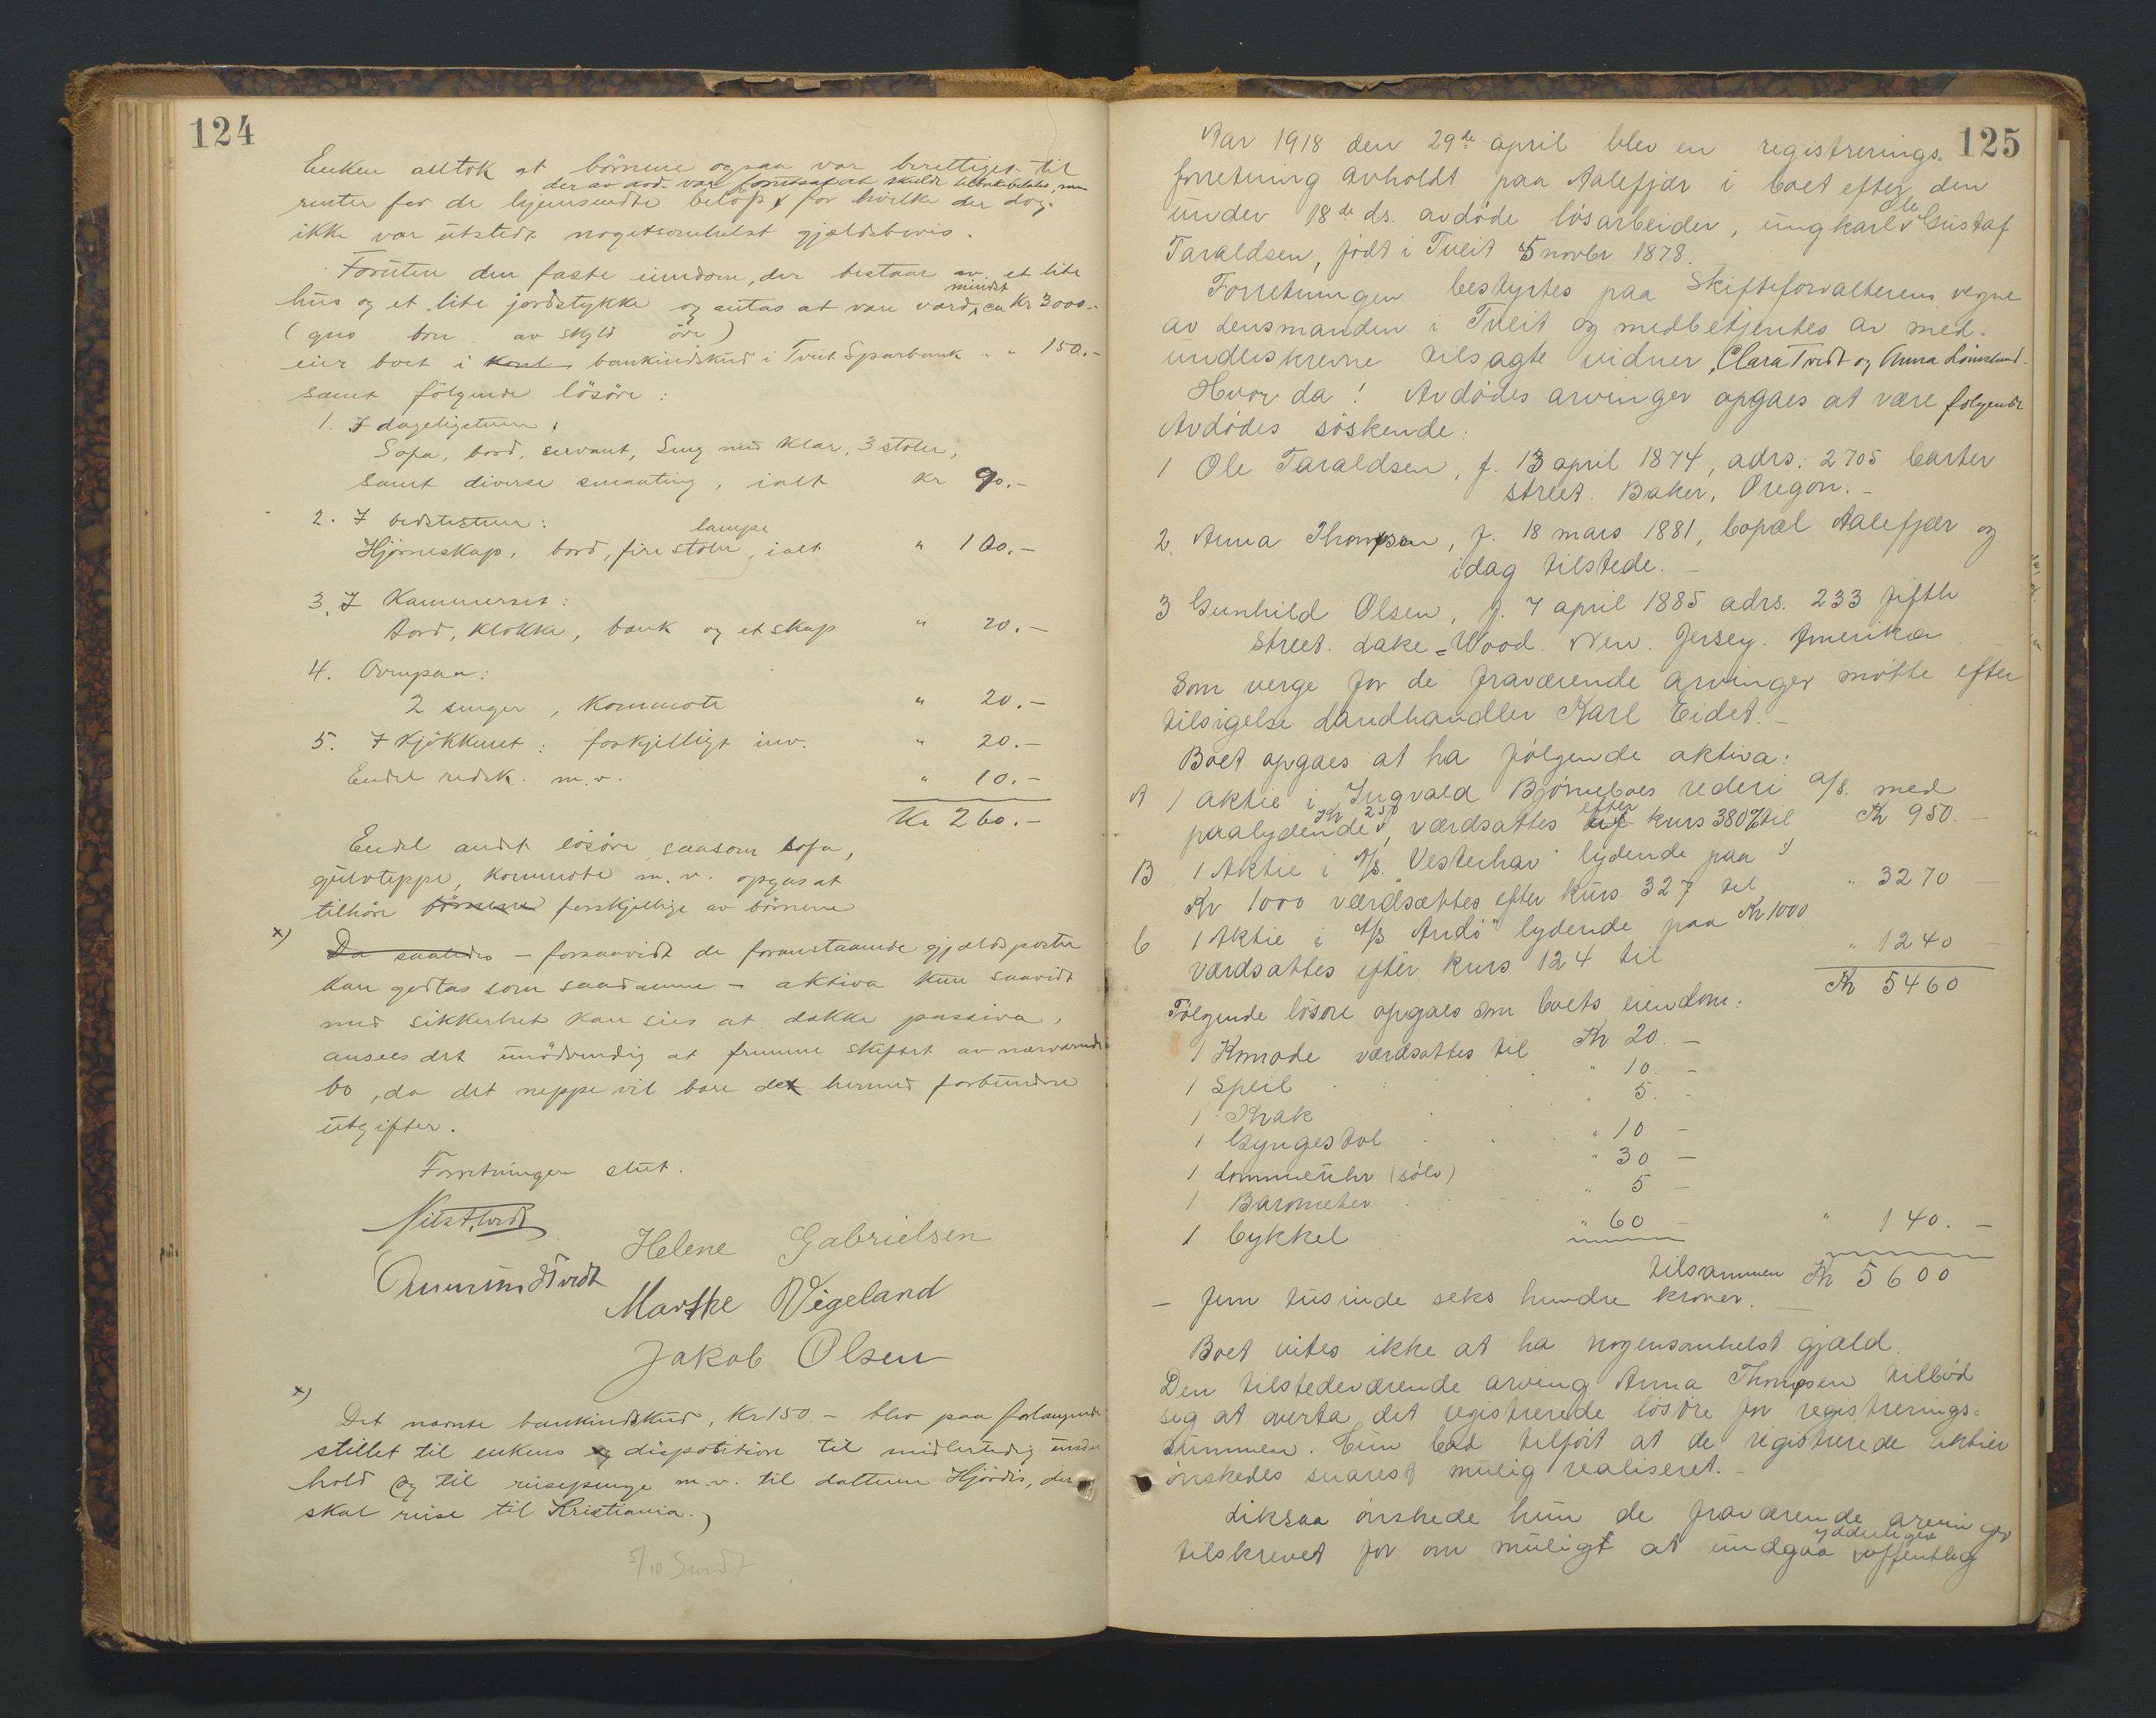 124
Enken alltok at börnene ogsaa var berettiget til
der av avd. var forutsat at skulde tilbakebetales, men
renter for de hjemsendte belöp, for hvilke der dog
ikke var utstedt nogetsomhelst gjældsbevis.
Foruten den faste eiendom, der bestaar av et lite
mindst
hus og et lite jordstykke og antas at være værd ca Kr 3000.-
(gno brn av skyld öre)
eier boet i kont bankindskud i Tveit Sparbank " " 150.-
samt fölgende lösöre:
1. I dagligstuen:
Sofa, bord, servant, Seng med klær, 3 stoler,
samt diverse smaating, ialt Kr 90.-
2. I bedstestuen:
lampe
Hjörneskap, bord, fire stoler, ialt " 100.-
3. I Kammerset:
Bord, klokke, bænk og et skap " 20.-
4. Ovenpaa:
2 senger, Kommode " 20.-
5. I Kjökkenet: forskjelligt inv. " 20.-
Endel redsk. m.v. " 10.-
Kr 260.-
Endel andet lösöre saasom sofa,
gulvteppe, kommode m.v. opgaes at
tilhöre börnene forskjellige av börnene
x)
Da saaledes - forsaavidt de foranstaaende gjældsposter
kan godtas som saadanne - aktiva kun saavidt
med sikkerhet kan sies at dække passiva,
ansees det unödvendig at fremme skiftet av nærværende
bo, da det neppe vil bære det hermed forbundne
utgifter.
Forretningen slut.
Nils Tvedt
Helene Gabrielsen
Ommund Tvedt
Marthe Vigeland
Jakob Olsen
x)
Det nævnte bankindskud, Kr 150.- blev paa forlangende
stillet til enkens og disposition til midlertidig under
hold og til reisepenge m.v. til datteren Hjördis, der
skal reise til Kristiania.
5/10 Sundt
125
Aar 1918 den 29de april blev en registrerings-
forretning avholdt paa Aalefjær i boet efter den
Ole
under 18de ds. avdöde lösarbeider, ungkarl Gustaf
Taraldsen, födt i Tveit 5 novbr 1878.
Forretningen bestyrtes paa Skifteforvalterens vegne
av Lensmanden i Tveit og medbetjentes av med-
undeskrevne tilsagte vidner, Clara Tvedt og Anna Lömsland.
Hvor da! Avdödes arvinger opgaes at være fölgende
Avdödes söskende:
1 Ole Taraldsen, f. 13 april 1874, adrs: 2705 Carter
street. Baker, Oregon.-
2. Anna Thompsen, f. 18 mars 1881, bopæl Aalefjær og
idag tilstede.-
3 Gunhild Olsen, f. 7 april 1885 adrs. 233 fifth
street. Lake-Wood. New. Jersey. Amerika
Som verge for de fraværende arvinger mötte efter
tilsigelse Landhandler Karl Eidet.-
Boet opgaes at ha fölgende aktiva:
A 1 aktie i Ingvald Bjørneboes rederi a/s. med
Kr 250 efter
paalydende, værdsattes av kurs 380% til Kr 950.-
B 1 Aktie i A/S. "Vesterhav" lydende paa
Kr 1000 værdsættes efter kurs 327 til " 3270 -
C 1 Aktie i A/S "Andö" lydende paa Kr 1000
værdsattes efter kurs 124 til " 1240 -
Kr 5460
Fölgende lösöre opgaes som boets eiendom:
1 Komode værdsattes til Kr 20.-
1 Speil " 10.-
1 Krak " 5.-
1 Gyngestol " 10 -
1 Lommeuhr (sölv) " 30 -
1 Barometer " 5 -
1 Cykkel " 60 - " 140.-
tilsammen Kr 5600
- fem tusinde seks hundre kroner.-
Boet vites ikke at ha nogensomhelst gjæld.
Den tilstedeværende arving Anna Thompsen tilböd
sig at overta det registrerede lösöre for registrerings-
summen. Hun bad tilfört at de registrerede aktier
önskedes snarest mulig realiseret.-
Likesaa önskede hun de fraværende arvinger
ydderligere
tilskrevet for om muligt at undgaa offentlig